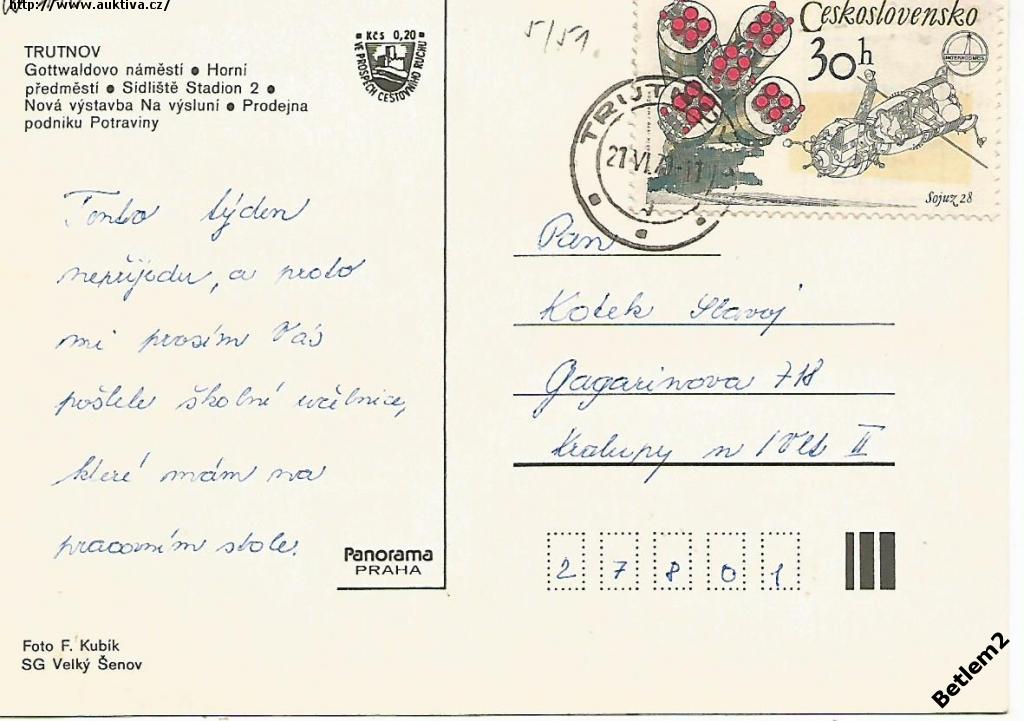 http://www.auktiva.cz/
TRUTNOV
Gottwaldovo náměstí • Horní
předměstí • Sídliště Stadion 2 •
Nová výstavba Na výsluní • Prodejna
podniku Potraviny
Kčs 0,20
VE PROSPĚCH CESTOVNÍHO RUCHU
5/51.
Československo
30h
INTERKOSMOS
Sojuz 28
TRUTNOV
Tento týden
nepřijedu, a proto
mi prosím Vás
pošlete školní učebnice,
které mám na
pracovním stole.
Pan
Kotek Slavoj
Gagarinova 718
Kralupy n/Vlt II
27801
Panorama
PRAHA
Foto F. Kubík
SG Velký Šenov
Betlem2